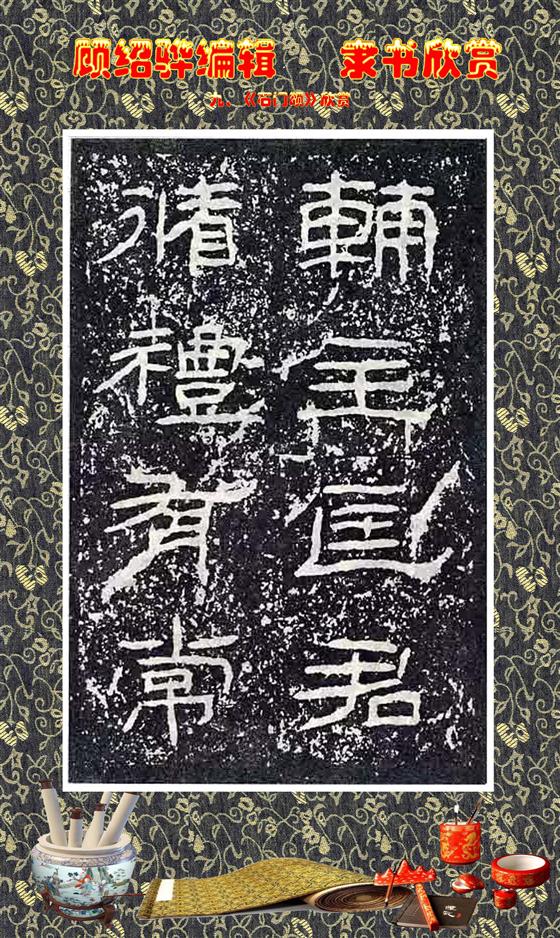 顾绍骅编辑 隶书欣赏
九、《石门颂》欣赏
輔主匡君
循禮有常